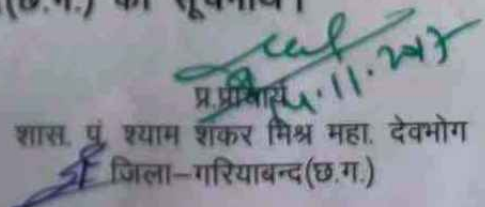 (छ.ग.) को सूचनार्थ।
प्र.प्राचार्य
शास. पं. श्याम शंकर मिश्र महा. देवभोग
जिला-गरियाबन्द(छ.ग.)